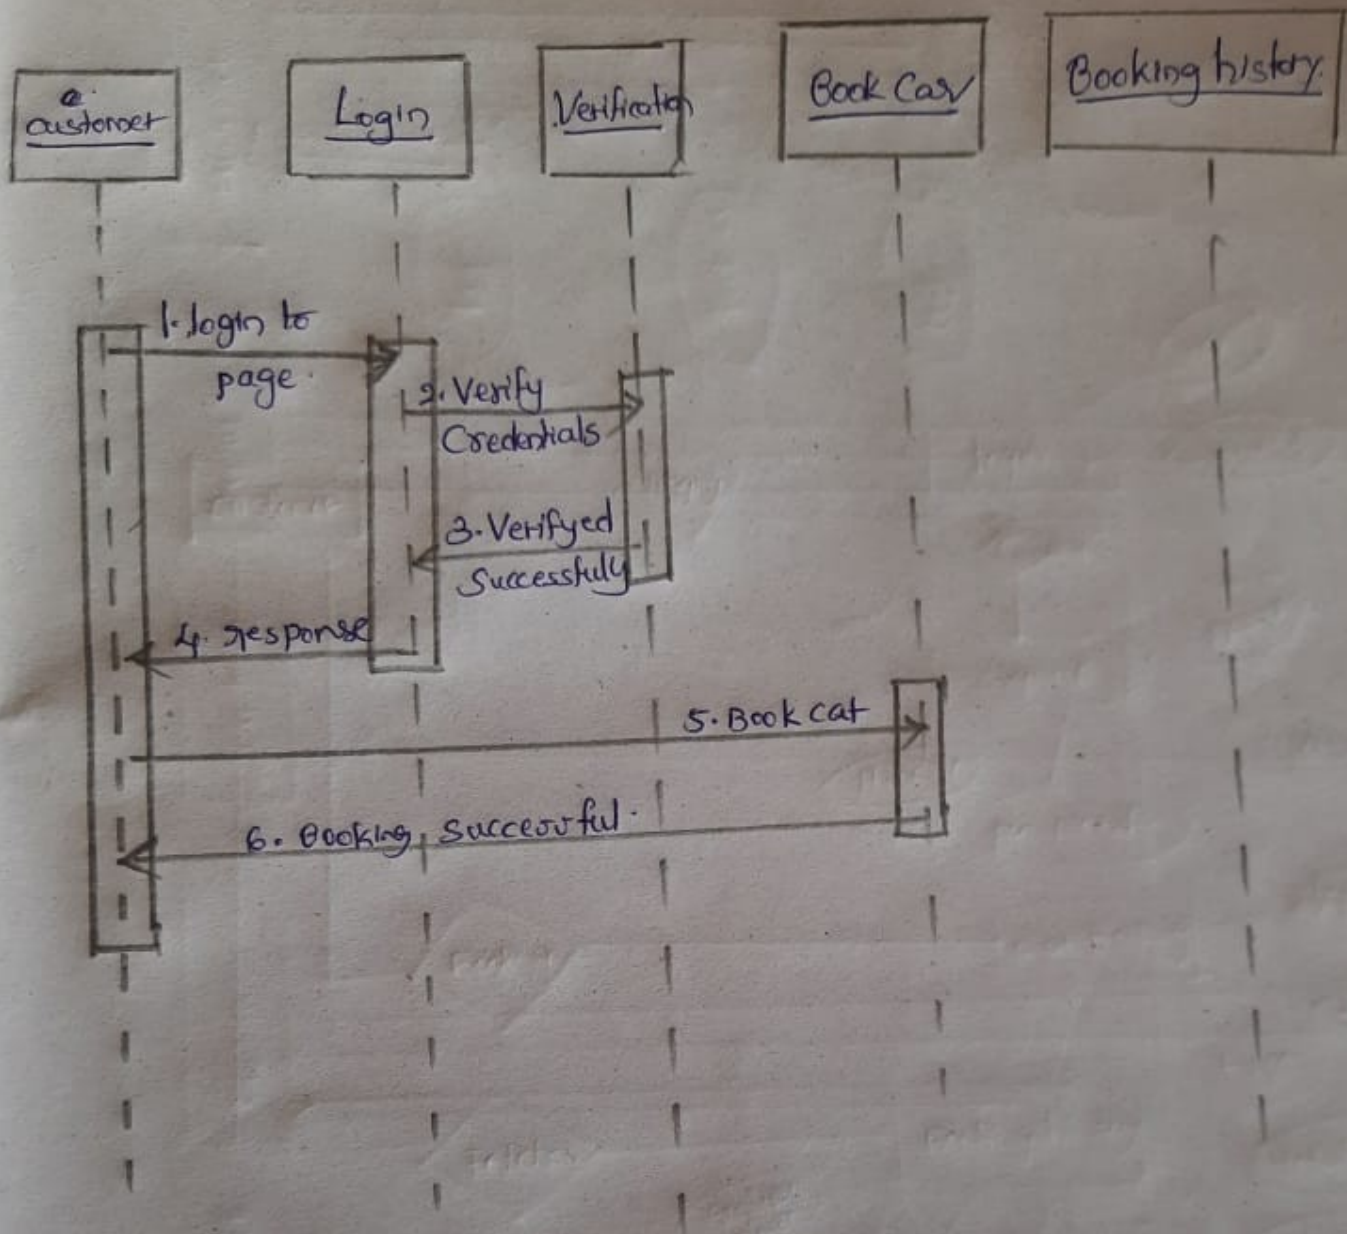 customer
Login
Verification
Book Car
Booking history.
1. login to
page.
2. Verify
Credentials
3. Verifyed
Successfuly
4. response
5. Book car
6. Booking successful.